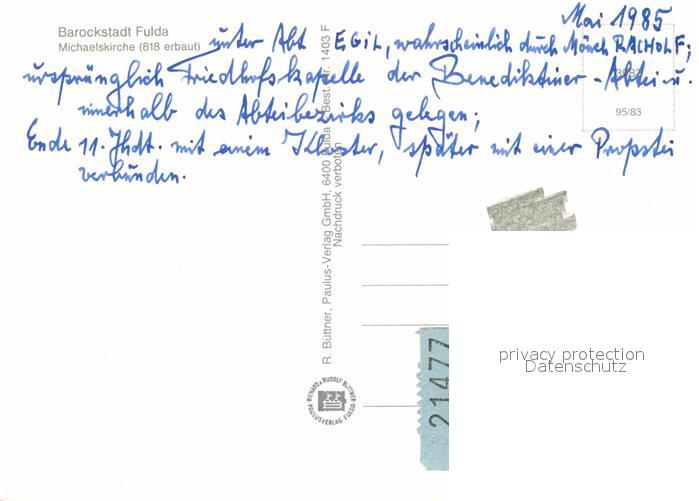 Mai 1985
Barockstadt Fulda
Michaelskirche (818 erbaut)
unter Abt EGIL, wahrscheinlich durch Mönch RACHOLF;
ursprünglich Friedhofskapelle der Benediktiner-Abtei u.
innerhalb des Abteibezirks gelegen;
Ende 11. Jhdt. mit einem Kloster, später mit einer Propstei
verbunden.
95/83
R. Büttner, Paulus-Verlag GmbH, 6400 Fulda Best.-Nr. 1403 F
Nachdruck verboten
RICHARD & RUDOLF BÜTTNER
PAULUSVERLAG FULDA
21477
privacy protection
Datenschutz